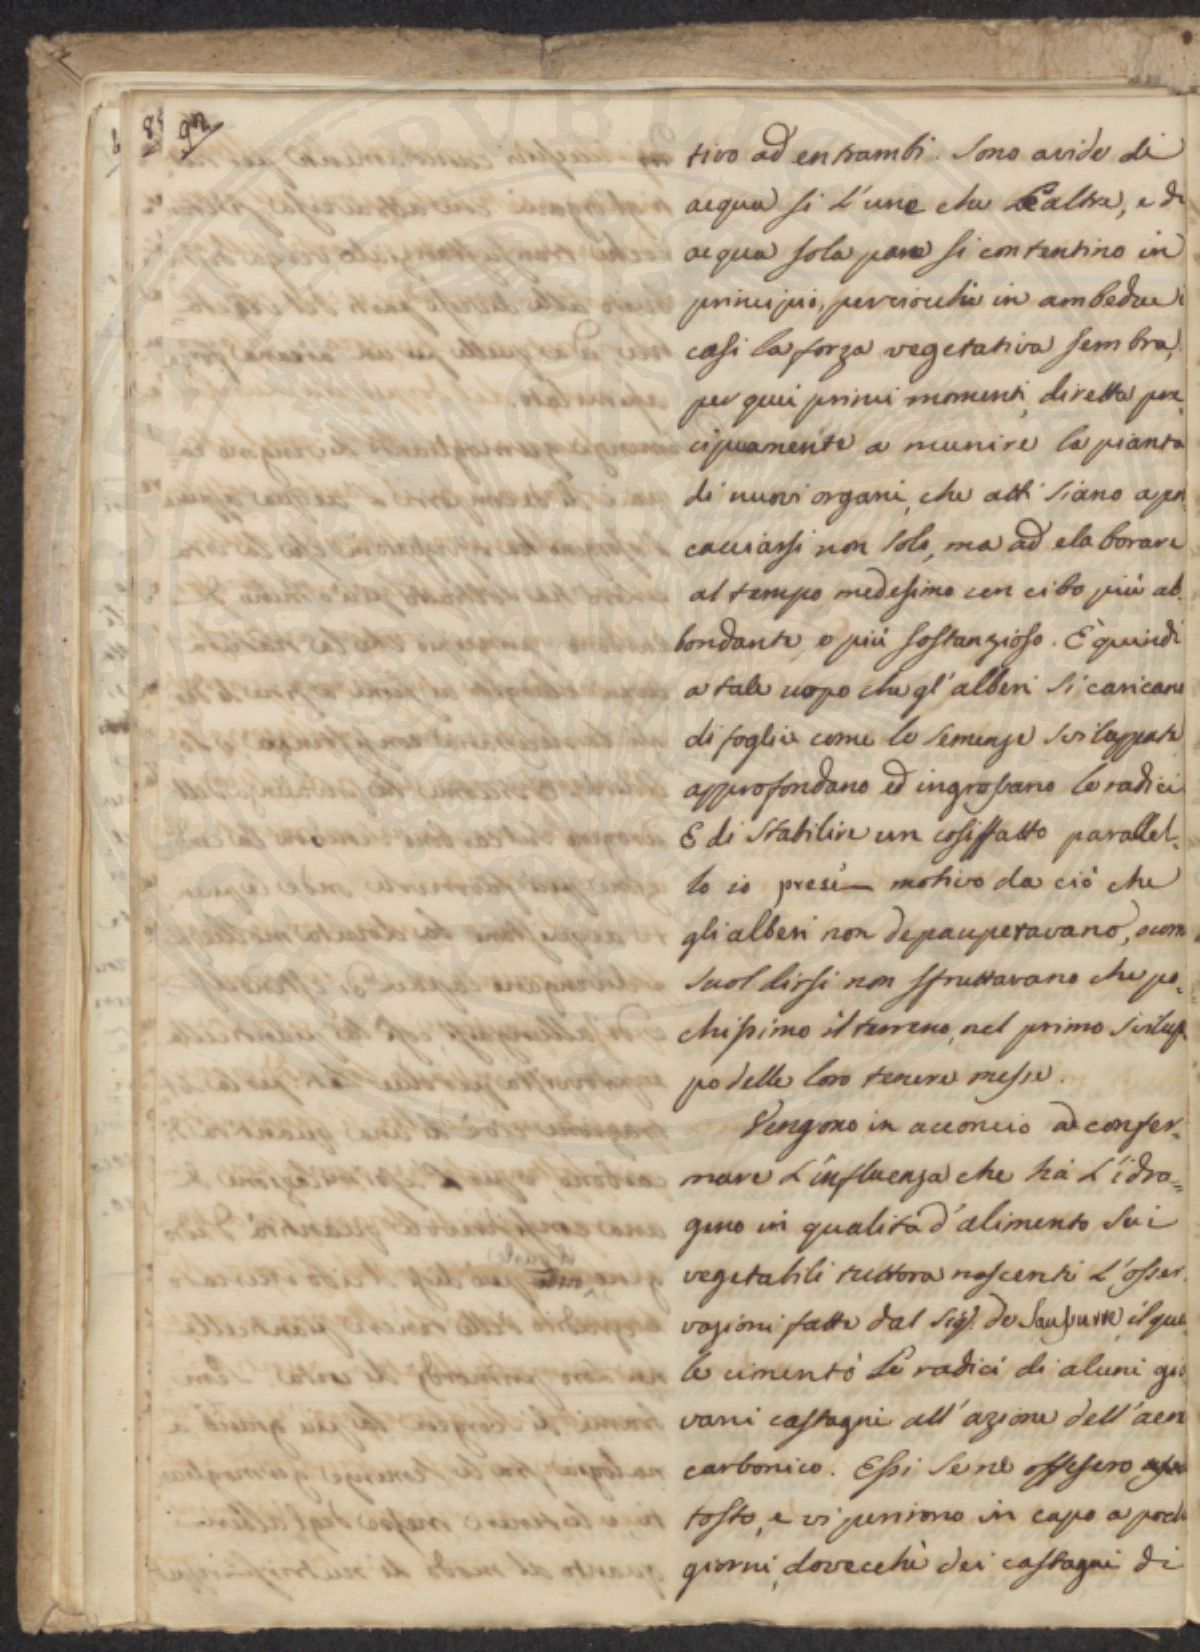 92
tivo ad entrambi. Sono avide di
acqua sì l'une che le altre, e di
acqua sola pare si contentino in
principio, perciocchè in ambedue i
casi la forza vegetativa sembra,
per quei primi momenti, diretta pre-
cipuamente a munire la pianta
di nuovi organi, che atti siano a pro
cacciarsi non solo, ma ad elaborare
al tempo medesimo un cibo più ab-
bondante e più sostanzioso. È quindi
a tale uopo che gl'alberi si caricano
di foglie come le semenze sviluppate
approfondano ed ingrossano le radici
E di stabilire un cosiffatto parallel-
lo io presi motivo da ciò che
gli alberi non depauperavano, o come
suol dirsi non sfruttavano che po-
chissimo il terreno, nel primo svilup
po delle loro tenere messe.
Vengono in acconcio a confer-
mare l'influenza che ha l'idro=
geno in qualità d'alimento sui
vegetabili tuttora nascenti l'osser
vazioni fatte dal Sig.r de Saussure, il qua
le cimentò le radici di alcuni gio
vani castagni all'azione dell'acido
carbonico. Essi se ne offesero
tosto, e vi perirono in capo a pochi
giorni, dovecchè dei castagni di